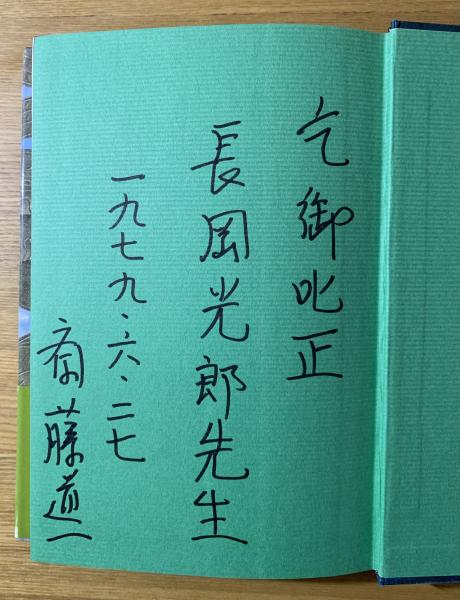 乞御叱正
長岡光郎先生
一九七九・六・二七
斎藤道一